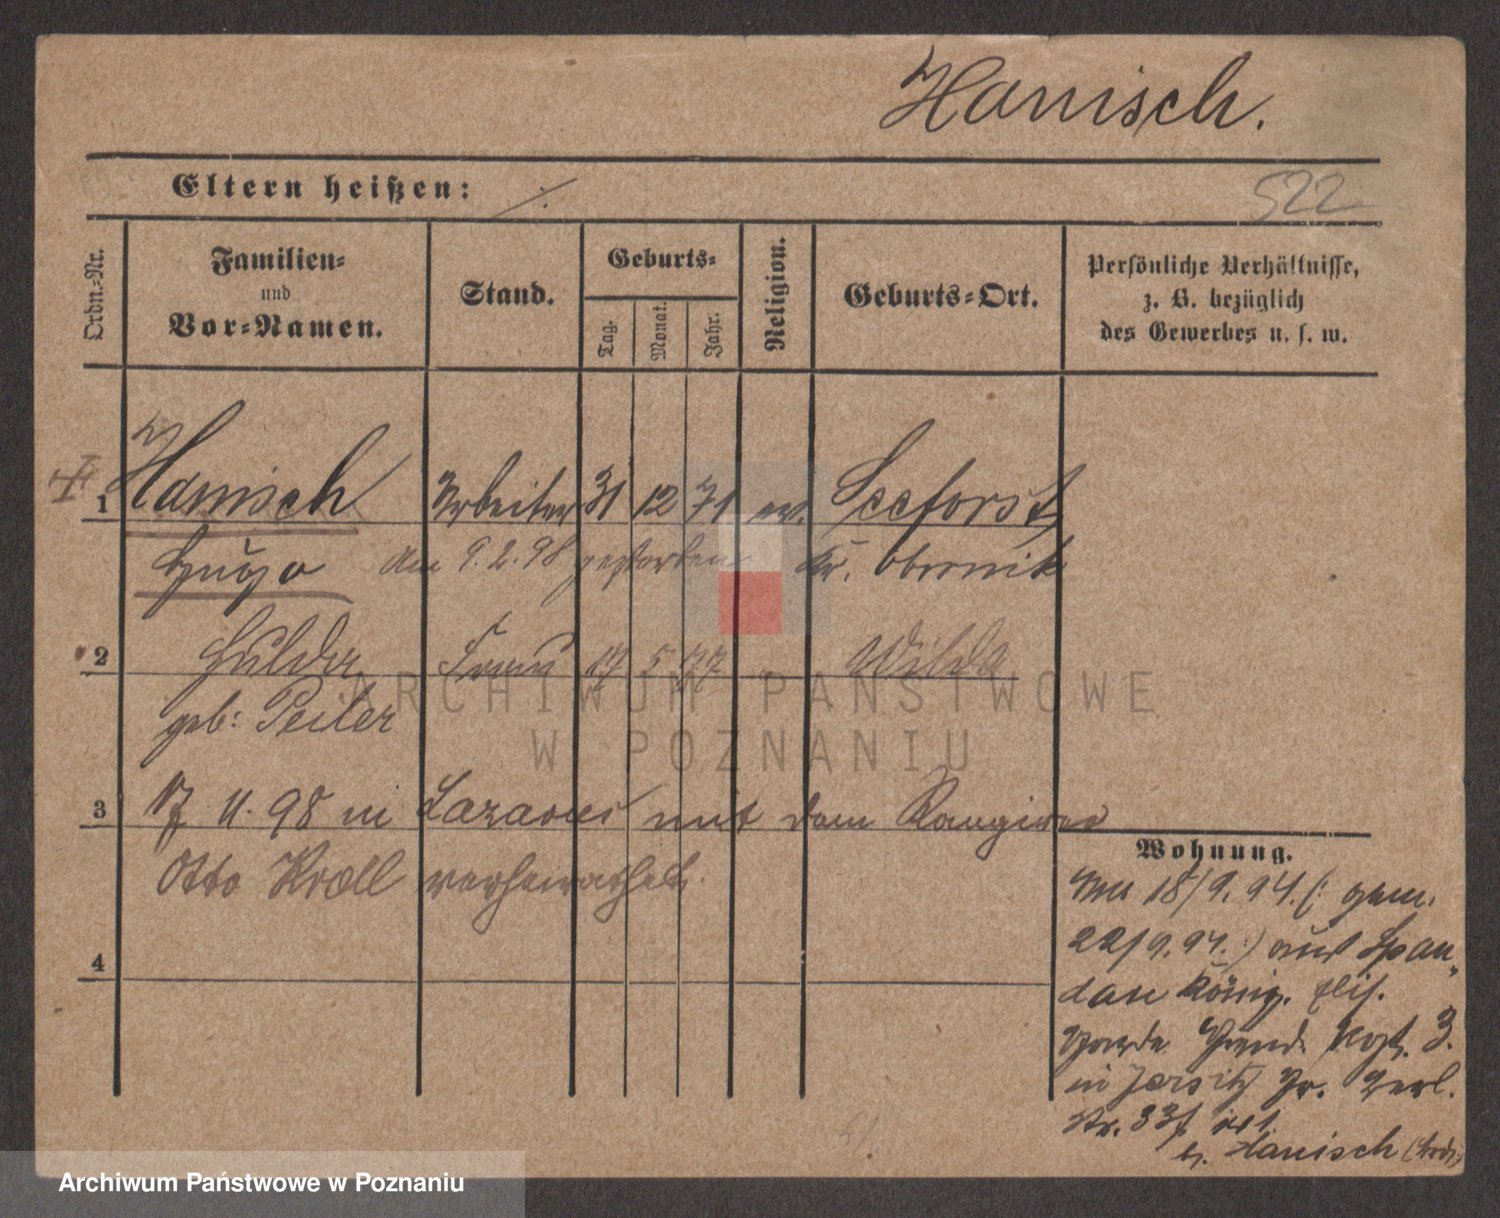 Hanisch.
Eltern heißen: ./.
522
Ordn.-Nr.
Familien-
und
Vor-Namen.
Stand.
Geburts-
Tag.
Monat.
Jahr.
Religion.
Geburts-Ort.
Persönliche Verhältnisse,
z. B. bezüglich
des Gewerbes u. s. w.
1 Hanisch Arbeiter 31 12 71 ev. Seeforst
Hugo am 9.2.98 gestorben Kr. Obornik
2 Hulda Frau 14 5 77 " Wilda
geb: Peiler
3 17 11. 98 in Lazarus mit dem Rangirer
Otto Kroll verheirathet.
4
Wohnung.
18/9. 94. (: gem.
22/9. 94. :) aus Span-
dau König. Elis.
Garde Grend. Rgt. 3.
in Jersitz Gr. Berl.
Str. 33
b. Hanisch
ARCHIWUM PAŃSTWOWE
W POZNANIU
Archiwum Państwowe w Poznaniu